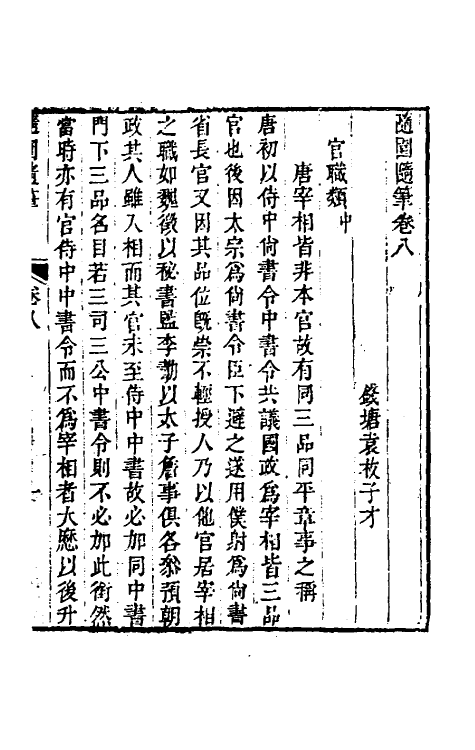 隨園隨筆卷八
錢塘袁枚子才
官職類中
唐宰相皆非本官故有同三品同平章事之稱
唐初以侍中尚書令中書令共議國政為宰相皆三品
官也後因太宗為尚書令臣下避之遂用僕射為尚書
省長官又因其品位既崇不輕授人乃以他官居宰相
之職如魏徵以秘書監李勣以太子詹事俱各叅預朝
政其人雖入相而其官未至侍中中書故必加同中書
門下三品名目若三司三公中書令則不必加此銜然
當時亦有官侍中中書令而不為宰相者大歷以後升
隨園隨筆 卷八